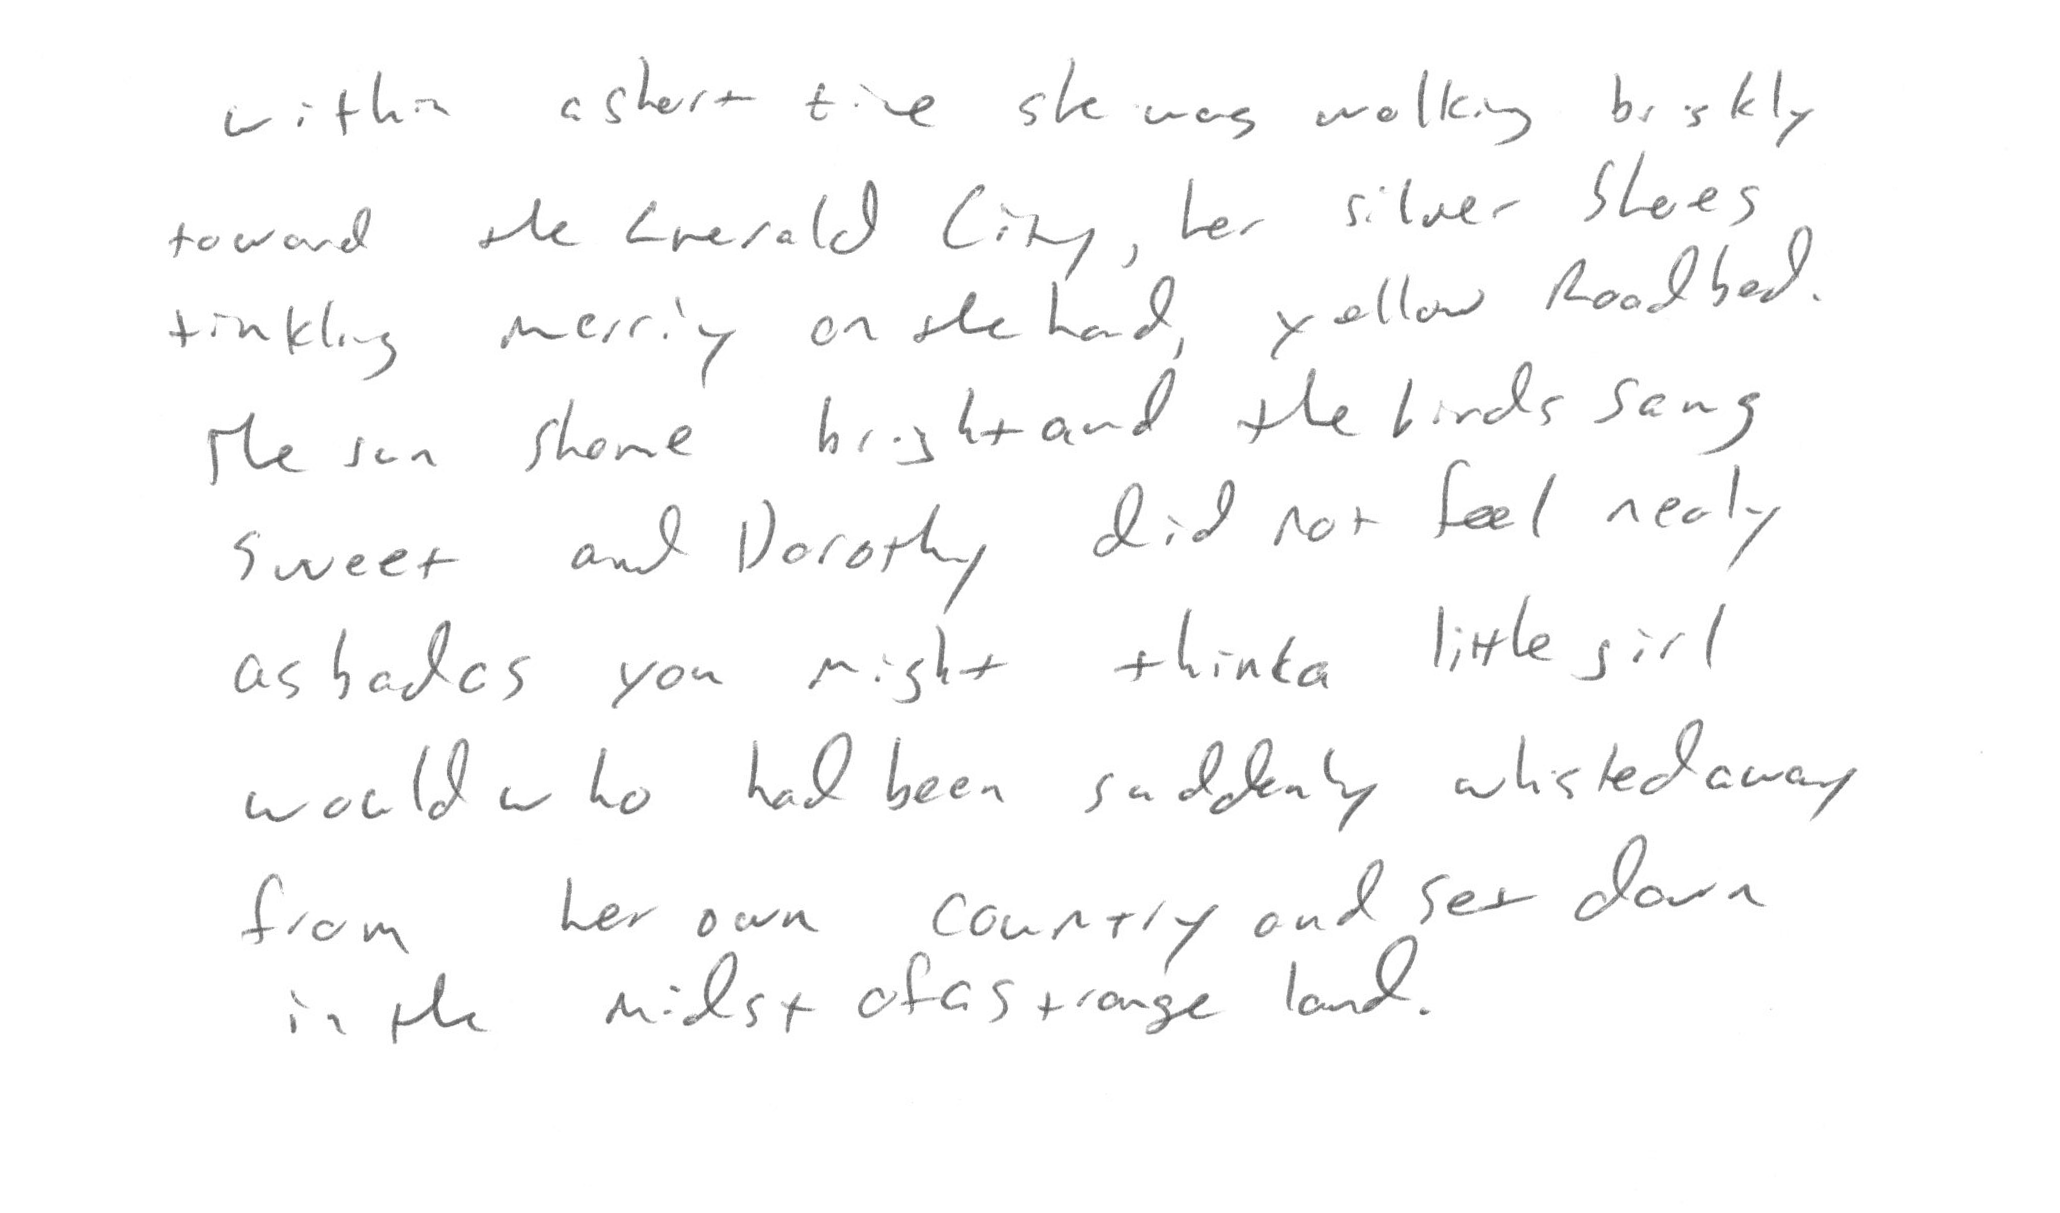 within a short time she was walking briskly
toward the Emerald City, her silver Shoes
tinkling merrily on the hard, yellow Roadbed.
The sun shone bright and the birds sang
sweet and Dorothy did not feel nealy
as bad as you might think a little girl
would who had been suddenly whisked away
from her own country and set down
in the midst of a strange land.